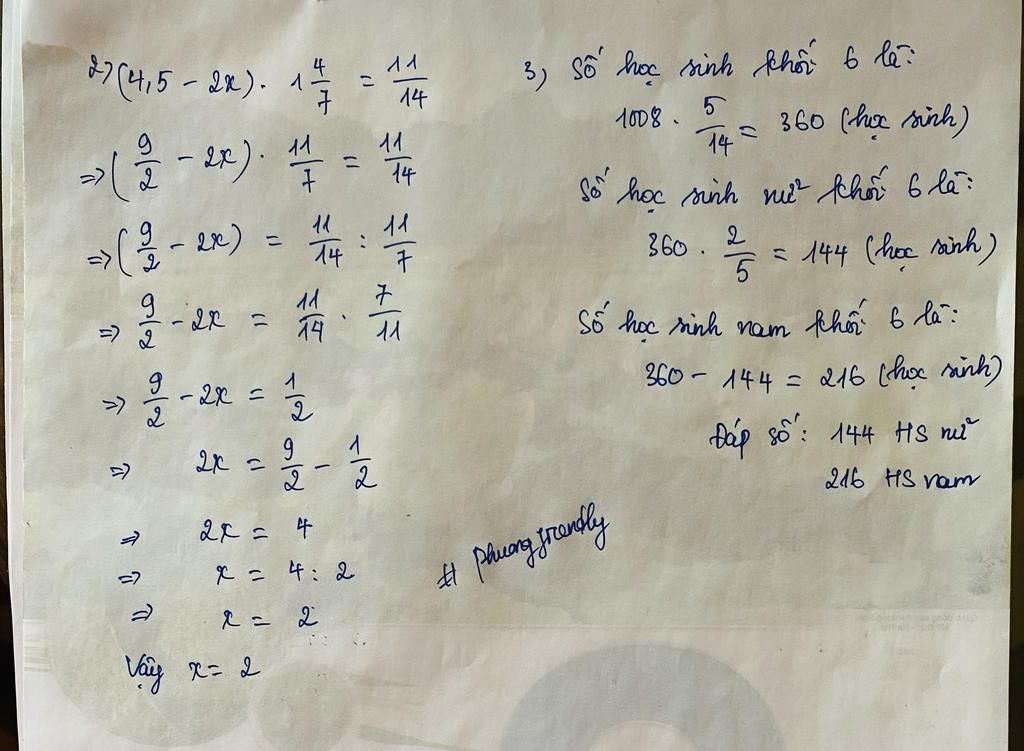 2) (4,5 - 2x). 1 4/7 = 11/14
=> (9/2 - 2x). 11/7 = 11/14
=> (9/2 - 2x) = 11/14 : 11/7
=> 9/2 - 2x = 11/14 . 7/11
=> 9/2 - 2x = 1/2
=> 2x = 9/2 - 1/2
=> 2x = 4
=> x = 4 : 2
=> x = 2
Vậy x = 2
3) Số học sinh khối 6 là:
1008 . 5/14 = 360 (học sinh)
Số học sinh nữ khối 6 là:
360 . 2/5 = 144 (học sinh)
Số học sinh nam khối 6 là:
360 - 144 = 216 (học sinh)
Đáp số: 144 HS nữ
216 HS nam
# phuongfriendly